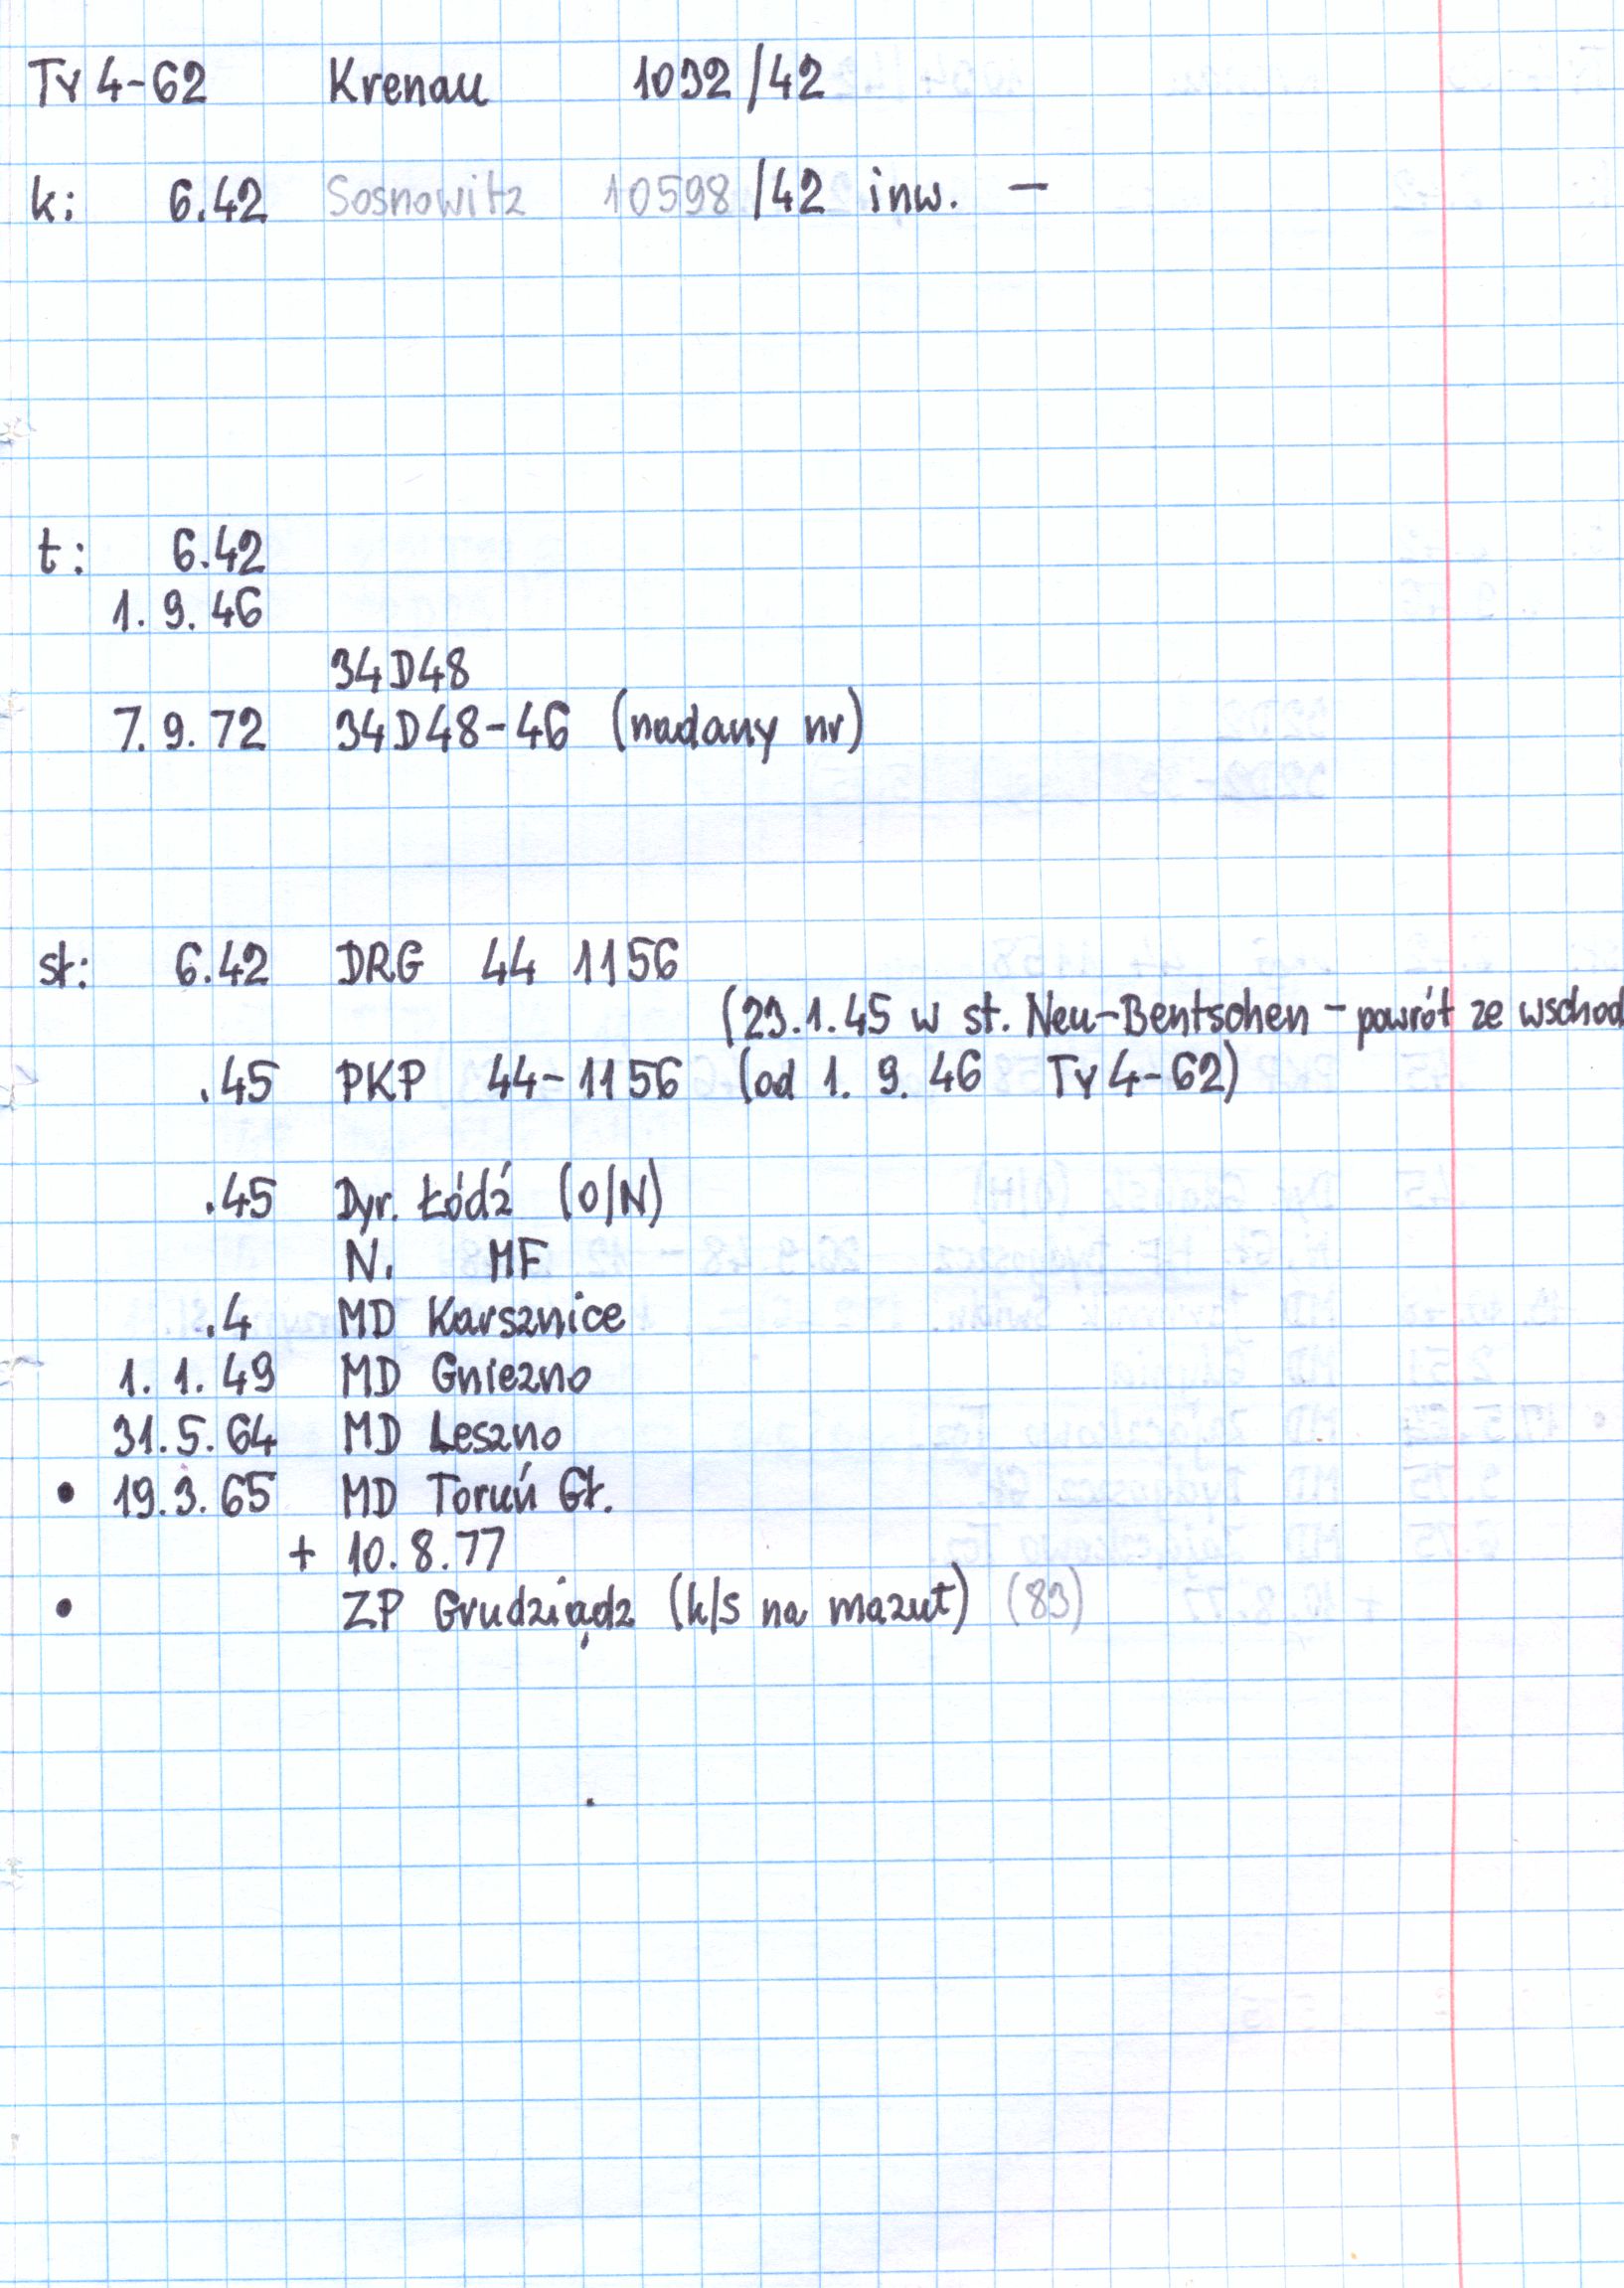 Ty 4-62 Krenau 1032/42
k: 6.42 Sosnowitz 10598/42 inw. –
t: 6.42
1. 9. 46
34D48
7. 9. 72 34D48-46 (nadany nr)
st: 6.42 DRG 44 1156
(23.1.45 w st. Neu-Bentschen - powrót ze wschod
.45 PKP 44-1156 (od 1. 9. 46 Ty 4-62)
.45 Dyr. Łódź (O/N)
N. MF
.4 MD Karsznice
1. 1. 49 MD Gniezno
31. 5. 64 MD Leszno
• 19. 3. 65 MD Toruń Gł.
+ 10. 8. 77
• ZP Grudziądz (k/s na mazut) (83)